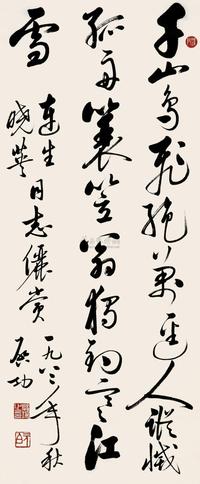 千山鳥飛絕万逕人蹤滅
孤舟蓑笠翁獨釣寒江
雪
連生
晓同志儷赏
一九八二年秋
启功